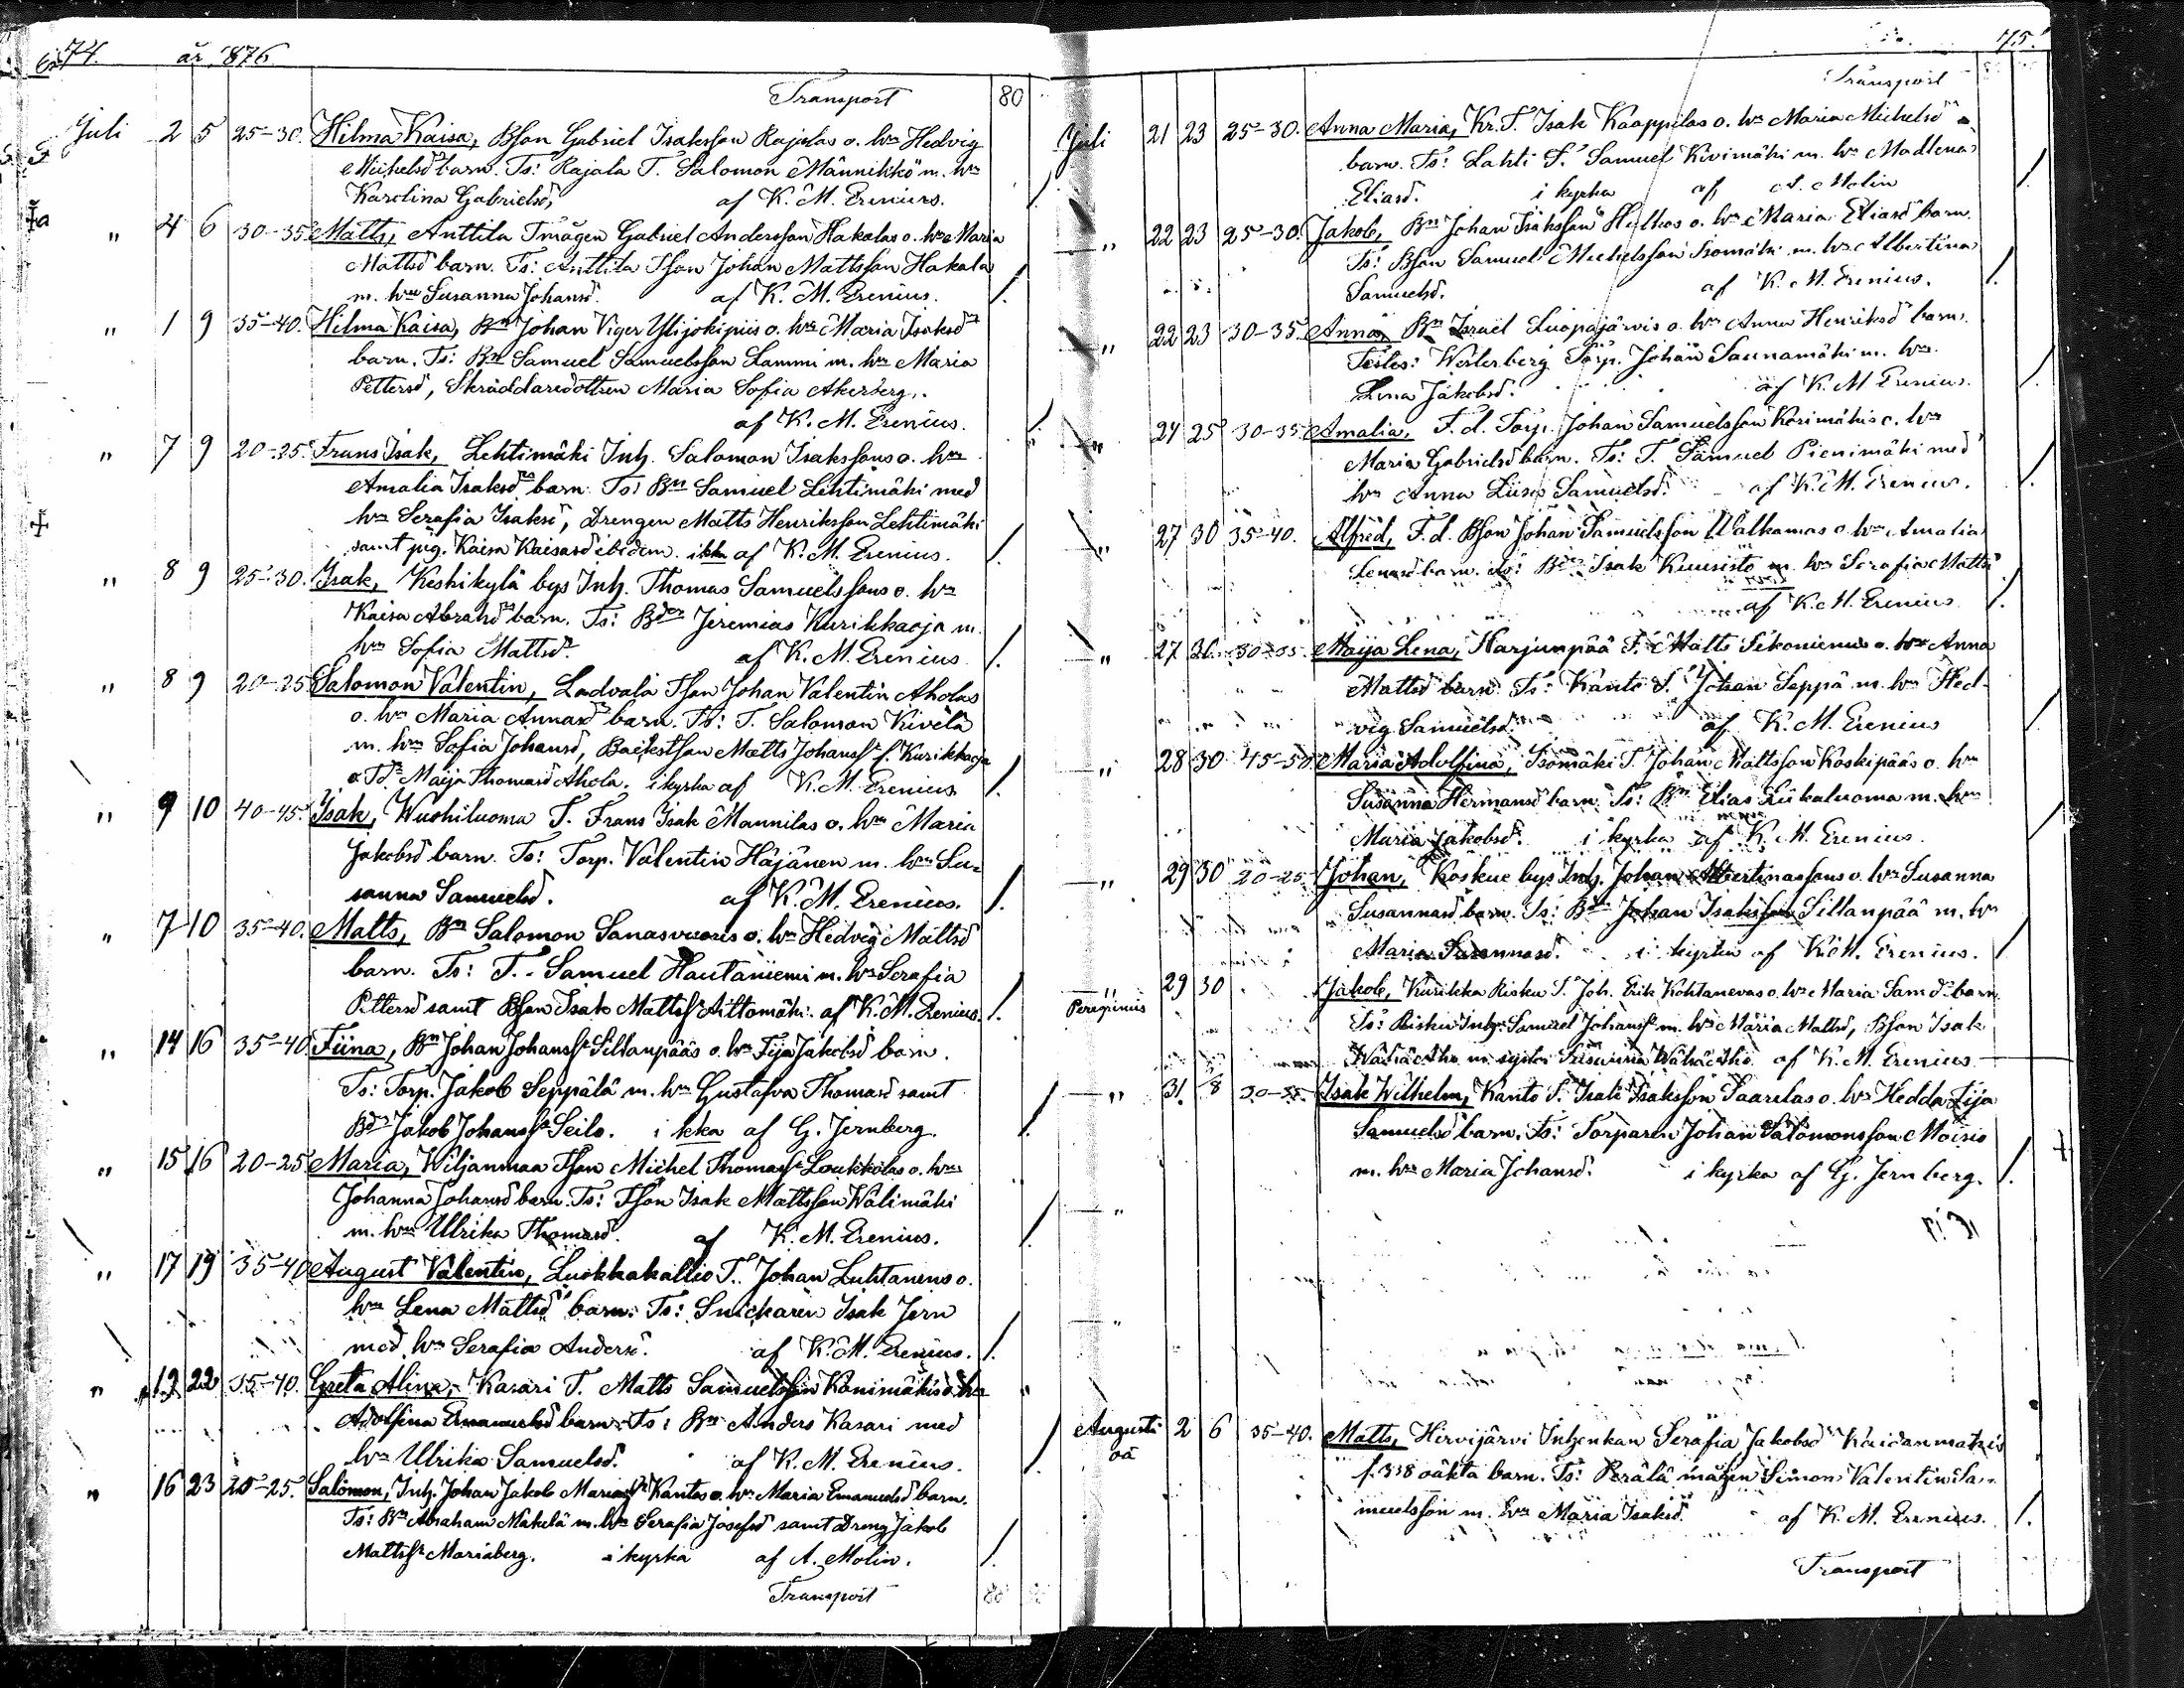 74. år 1876.
Transport 80
Juli 2 5 25-30. Hilma Kaisa, Bson Gabriel Isaksson Rajalas o. hrs Hedvig
Michelsd barn. Ts: Rajala T. Salomon Männikkö m. hru
Karolina Gabrielsd, af K. M. Erenius.
" 4 6 30-35 Matts, Anttila Tmågen Gabriel Andersson Hakalas o. hrs Maria
Mattsd barn. Ts: Anttila Tson Johan Mattsson Hakala
m. hru Susanna Johansd. af K. M. Erenius.
" 1 9 35-40. Hilma Kaisa, Bn Johan Viger Ylijokipiis o. hrs Maria Isaksd
barn. Ts: Bn Samuel Samuelsson Lammi m. hru Maria
Pettersd, Skräddaredottren Maria Sofia Åkerberg.
af K. M. Erenius.
" 7 9 20-25. Frans Isak, Lehtimäki Inh. Salomon Isakssons o. hrs
Amalia Isaksd barn. Ts: Bn Samuel Lehtimäki med
hru Serafia Isaksd, Drengen Matts Henriksson Lehtimäki
samt pig. Kaisa Kaisasd ibidem. i kka af K. M. Erenius.
" 8 9 25-30. Isak, Keskikylä bys Inh. Thomas Samuelssons o. hrs
Kaisa Abrahsd barn. Ts: Bdn Jeremias Kurikkaoja m.
hru Sofia Mattsd. af K. M. Erenius.
" 8 9 20-25 Salomon Valentin, Ladvala Tson Johan Valentin Aholas
o. hrs Maria Annasd barn. Ts: T. Salomon Kivelä
m. hru Sofia Johansd, Backstson Matts Johanss f. Kurikkaoja
o. Td Maija Thomasd Ahola. i kyrka af K. M. Erenius
" 9 10 40-45. Isak, Wuohiluoma T. Frans Isak Mannilas o. hrs Maria
Jakobsd barn. Ts: Torp. Valentin Häjänen m. hru Su-
sanna Samuelsd. af K. M. Erenius.
" 7 10 35-40. Matts, Bn Salomon Sanasvuoris o. hrs Hedvig Mattsd
barn. Ts: T. Samuel Hautaniemi m. hru Serafia
Pettersd samt Bson Isak Mattss Aittomäki af K. M. Erenius.
" 14 16 35-40. Fiina, Bn Johan Johanss Sillanpääs o. hrs Fija Jakobsd barn.
Ts: Torp. Jakob Seppälä m. hru Gustafva Thomasd samt
Bdn Jakob Johanss Seilo. i kka af G. Jernberg.
" 15 16 20-25 Maria, Wiljanmaa Tson Michel Thomass Loukkolas o. hrs
Johanna Johansd barn. Ts: Tson Isak Mattsson Wälimäki
m. hru Ulrika Thomasd. af K. M. Erenius.
" 17 19 35-40 August Valentin, Luokkakallio T. Johan Luhtanens o.
hrs Lena Mattsd barn. Ts: Snickaren Isak Jern
med hru Serafia Andersd. af K. M. Erenius.
" 13 22 35-40. Greta Alina, Kasari T. Matts Samuelsson Kanimäkis o. hrs
Adolfina Emanuelsd barn. Ts: Bn Anders Kasari med
hru Ulrika Samuelsd. af K. M. Erenius.
" 16 23 20-25. Salomon, Inh. Johan Jakob Mariass Kantos o. hrs Maria Emanuelsd barn.
Ts: Bn Abraham Mäkelä m. hru Serafia Josefsd samt Dreng Jakob
Mattss Mariaberg. i kyrka af A. Molin.
Transport
75.
Transport
Juli 21 23 25-30. Anna Maria, Kr. T. Isak Kaappilas o. hrs Maria Michelsd
barn. Ts: Lahti T. Samuel Kivimäki m. hru Madlena
Eliasd. i kyrka af A. Molin
" 22 23 25-30. Jakob, Bn Johan Isaksson Hulkos o. hrs Maria Eliasd barn.
Ts: Bson Samuel Michelsson Isomäki m. hru Albertina
Samuelsd. af K. M. Erenius.
" 22 23 30-35. Anna, Bn Israel Luopajärvis o. hrs Anna Henriksd barn.
Testes: Westerberg Torp. Johan Saunamäki m. hru
Lena Jakobsd. af K. M. Erenius.
" 24 25 30-35. Amalia, F. d. Torp. Johan Samuelsson Korimäkis o. hrs
Maria Gabrielsd barn. Ts: T. Samuel Pienimäki med
hru Anna Liisa Samuelsd. af K. M. Erenius.
" 27 30 35-40. Alfred, F. d. Bson Johan Samuelsson Walkamas o. hrs Amalia
barn. Ts: Bdn Isak Kuusisto m. hru Serafia Mattsd
af K. M. Erenius
" 27 30-35. Maija Lena, Harjunpää T. Matts Sikaniemis o. hrs Anna
Mattsd barn. Ts: Kanto T. Johan Seppä m. hru Hed-
vig Samuelsd. af K. M. Erenius
" 28 30 45-50 Maria Adolfina, Isomäki T. Johan Mattsson Koskipääs o. hrs
Susanna Hermansd barn. Ts: Bn Elias Liikaluoma m. hru
Maria Jakobsd. i kyrka af K. M. Erenius.
" 29 30 20-25. Johan, Koskue bys Inh. Johan Albertinassons o. hrs Susanna
Susannasd barn. Ts: Bdn Johan Isaksson Sillanpää m. hru
Maria Susannasd. i kyrka af K. M. Erenius.
" 29 30 Jakob, Kurikka Risku T. Joh. Erik Kohtanevas o. hrs Maria Samd barn
Peregrinus
Ts: Risku Inh. Samuel Johanss m. hru Maria Mattsd, Bson Isak
Wähä Aho m. syster Susanna Wähä Aho af K. M. Erenius
" 31. 8 30-35. Isak Wilhelm, Kanto T. Isak Isaksson Saarelas o. hrs Hedda Fija
Samuelsd barn. Ts: Torparen Johan Salomonsson Moisio
m. hru Maria Johansd. i kyrka af G. Jernberg.
Augusti 2 6 35-40. Matts, Hirvijärvi Inhenkan Serafia Jakobsd Kaidanmatkis
oä
f. 338 oäkta barn. Ts: Perälä mågen Simon Valentin Sa-
muelsson m. hru Maria Isaksd. af K. M. Erenius.
Transport